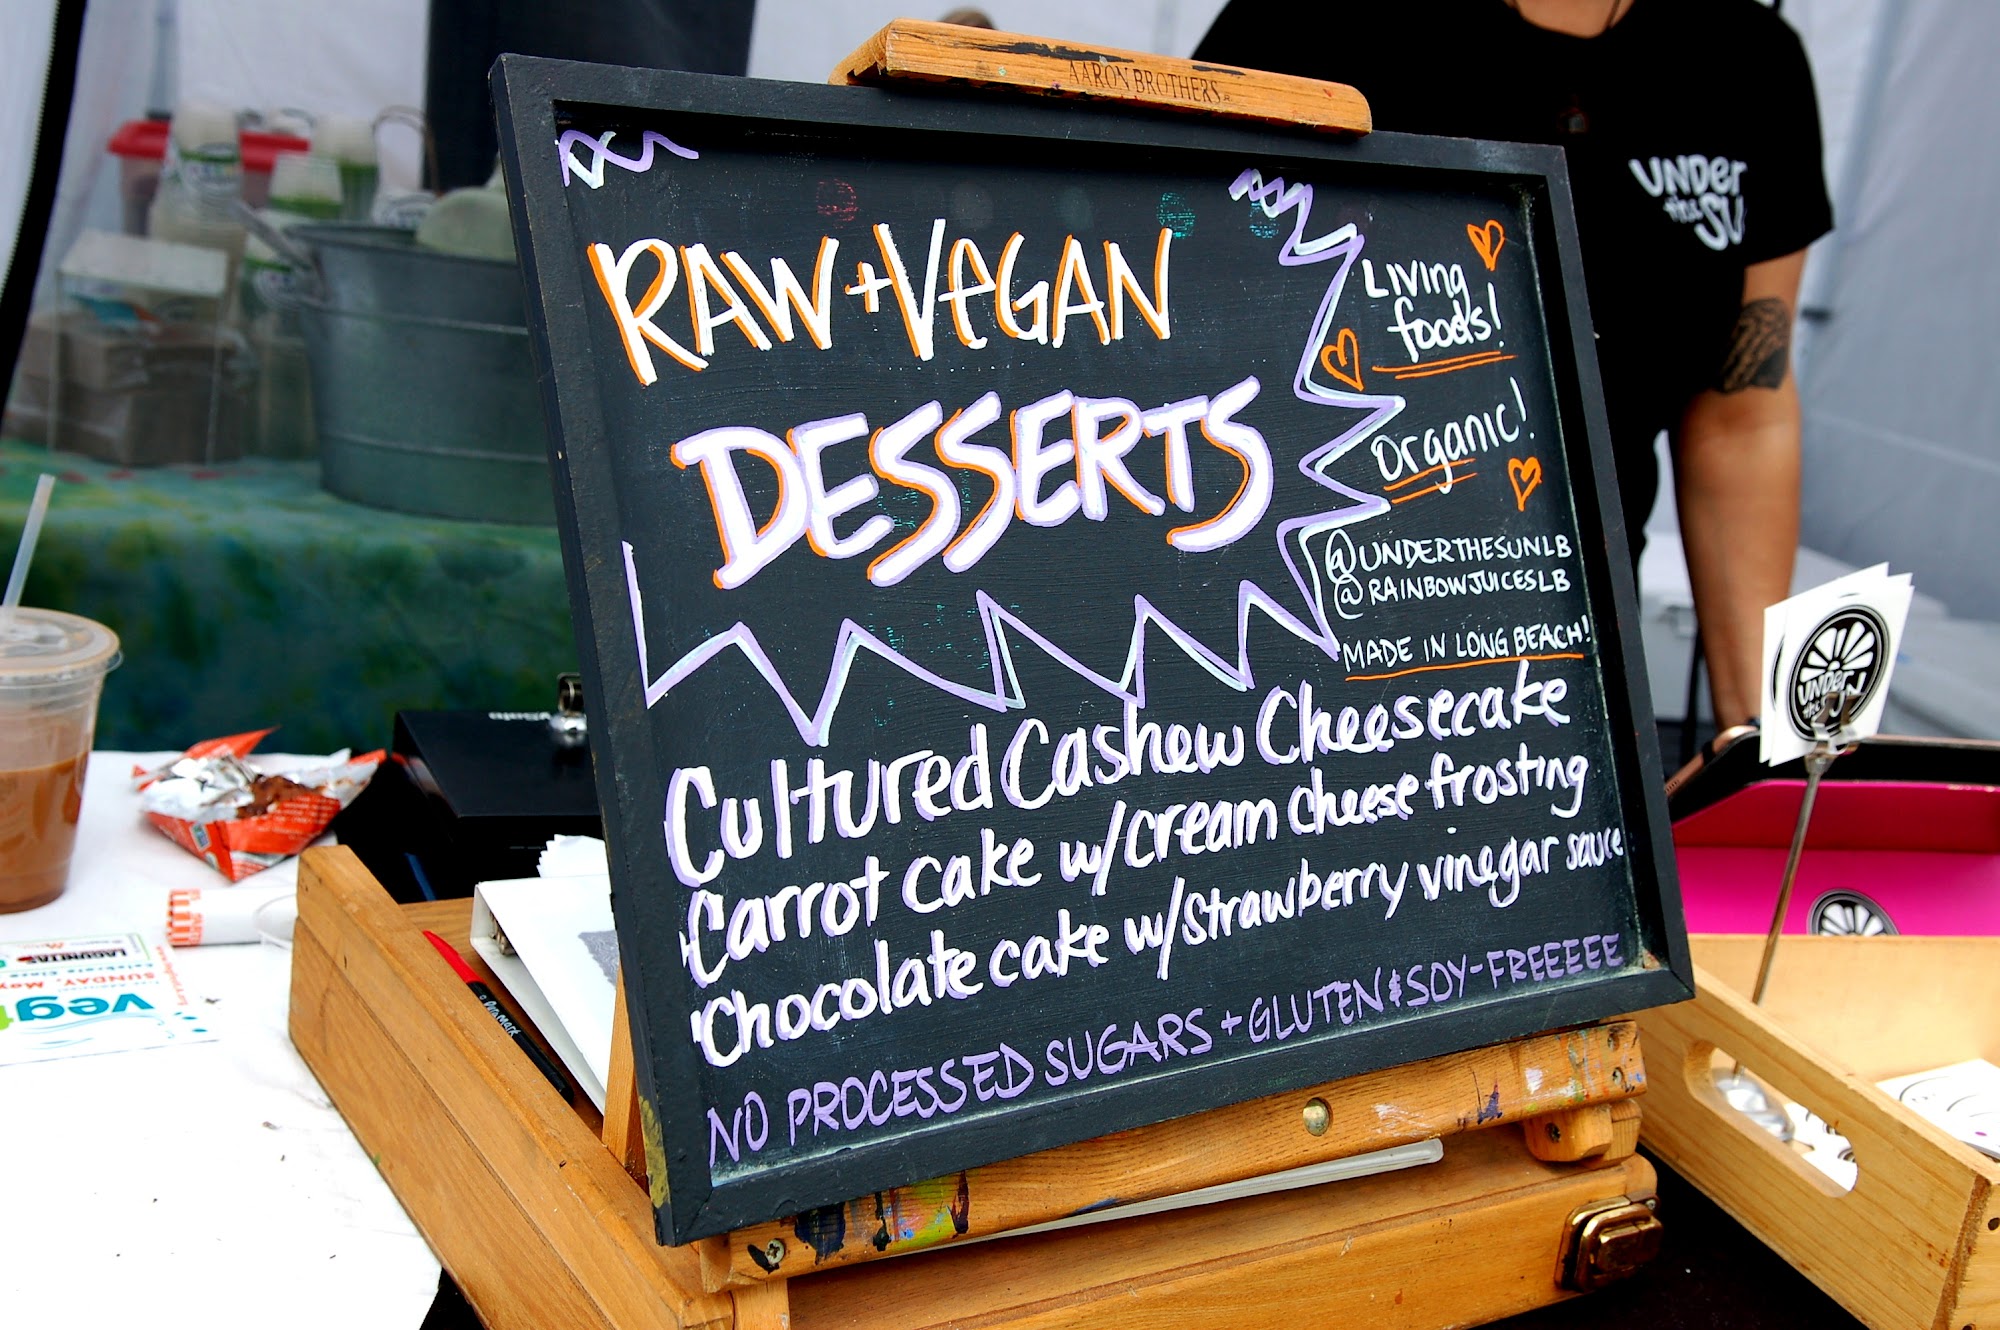 AARON BROTHERS
RAW + VEGAN
DESSERTS
LIVING
foods!
organic!
@UNDERTHESUNLB
@RAINBOWJUICESLB
MADE IN LONG BEACH!
Cultured Cashew Cheesecake
Carrot cake w/cream cheese frosting
Chocolate cake w/strawberry vinegar sauce
NO PROCESSED SUGARS + GLUTEN & SOY-FREEEEE
UNDER
the SU
UNDER
the SUN
LAGUNITAS
SUNDAY, May
veg